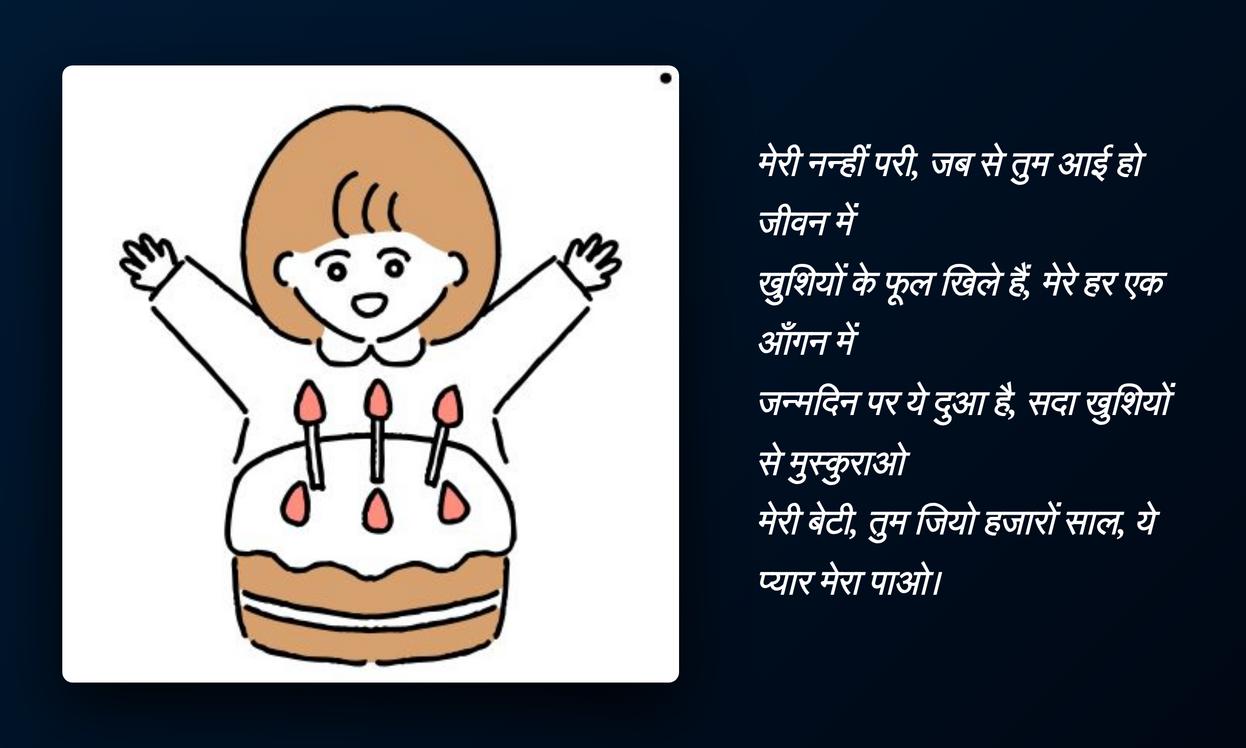 मेरी नन्हीं परी, जब से तुम आई हो
जीवन में
खुशियों के फूल खिले हैं, मेरे हर एक
आँगन में
जन्मदिन पर ये दुआ है, सदा खुशियों
से मुस्कुराओ
मेरी बेटी, तुम जियो हजारों साल, ये
प्यार मेरा पाओ।